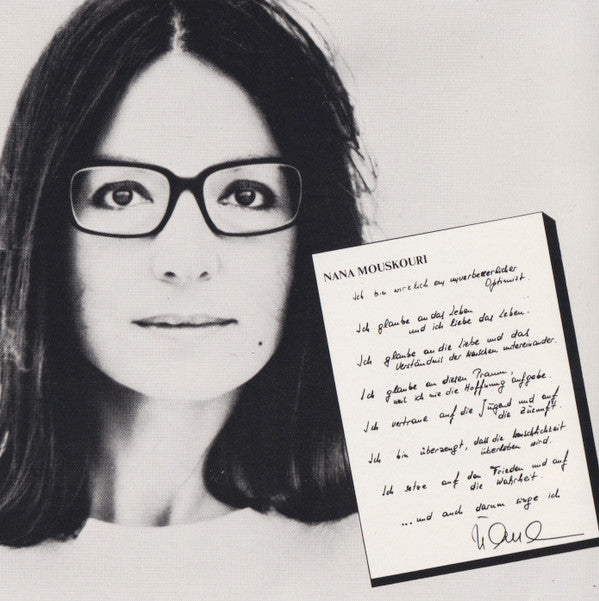 NANA MOUSKOURI
Ich bin wirklich ein unverbesserlicher
Optimist.
Ich glaube an das Leben
und ich liebe das Leben.
Ich glaube an die Liebe und das
Verständnis der Menschen untereinander.
Ich glaube an diesen Traum,
weil ich nie die Hoffnung aufgebe.
Ich vertraue auf die Jugend und auf
die Zukunft.
Ich bin überzeugt, daß die Menschlichkeit
überleben wird.
Ich setze auf den Frieden und auf
die Wahrheit.
...und auch darum singe ich
Nana